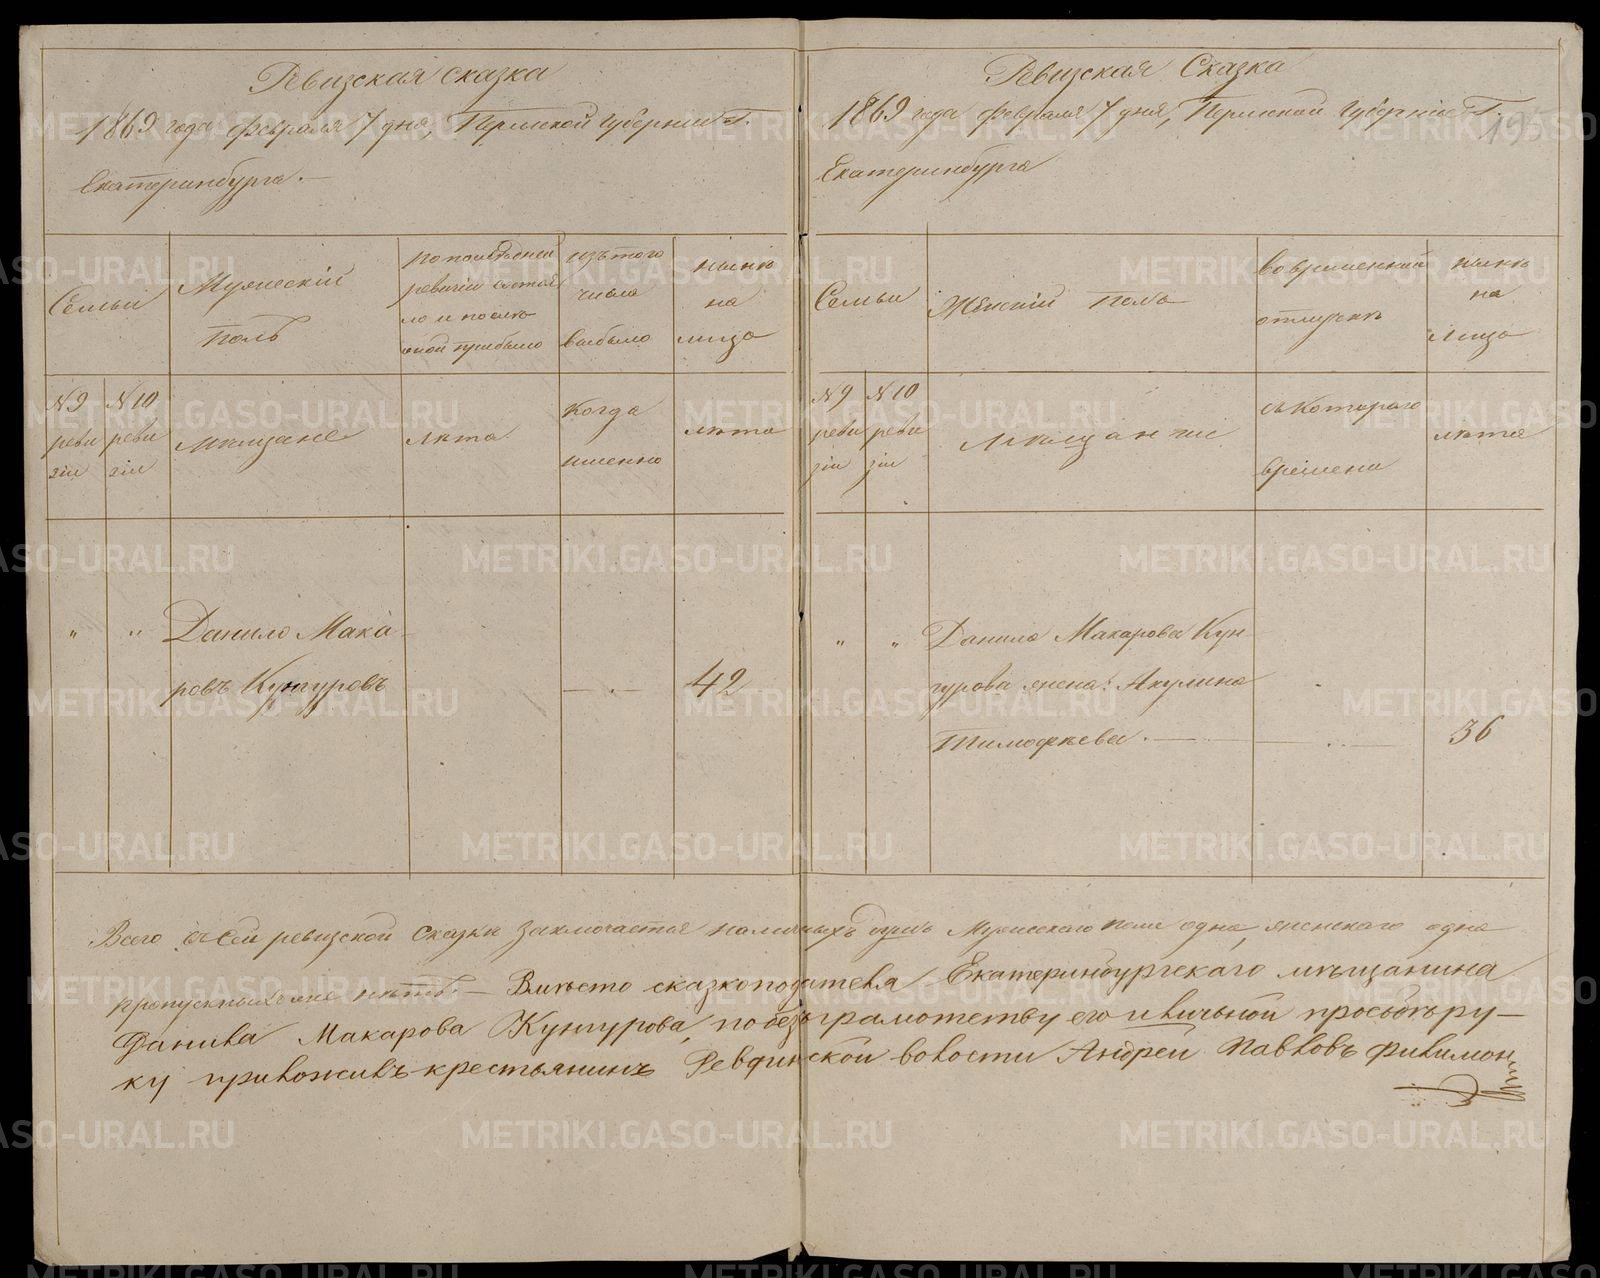 Ревизская сказка
1869 года февраля 7 дня, Пермской губернии Г.
Екатеринбурга.
Семьи
Мужескій
полъ
по последней
ревизіи состоя
ло и после
оной прибыло
изъ того
числа
выбыло
ныне
на
лицо
№9
реви
зіи
№10
реви
зіи
мещане
лета
когда
именно
лета
" " Данило Мака
ровъ Кунгуровъ
42
Ревизская Сказка
1869 года февраля 7 дня, Пермской губерніи Г.
195
Екатеринбурга
Семьи
Женскій полъ
во временной
отлучке
ныне
на
лицо
№9
реви
зіи
№10
реви
зіи
мещанкіе
съ котораго
времени
лета
" " Данила Макарова Кун
гурова жена: Акулина
Тимофѣева.
36
Всего въ сей ревизской сказкѣ заключается наличныхъ душъ мужескаго пола одна, женскаго одна
пропускныхъ же нѣтъ. — Вмѣсто сказкоподателя Екатеринбургскаго мѣщанина
Данила Макарова Кунгурова, по безграмотству его и личной просьбѣ ру–
ку приложилъ крестьянинъ Ревдинской волости Андрей Павловъ Филимон
METRIKI.GASO-URAL.RU